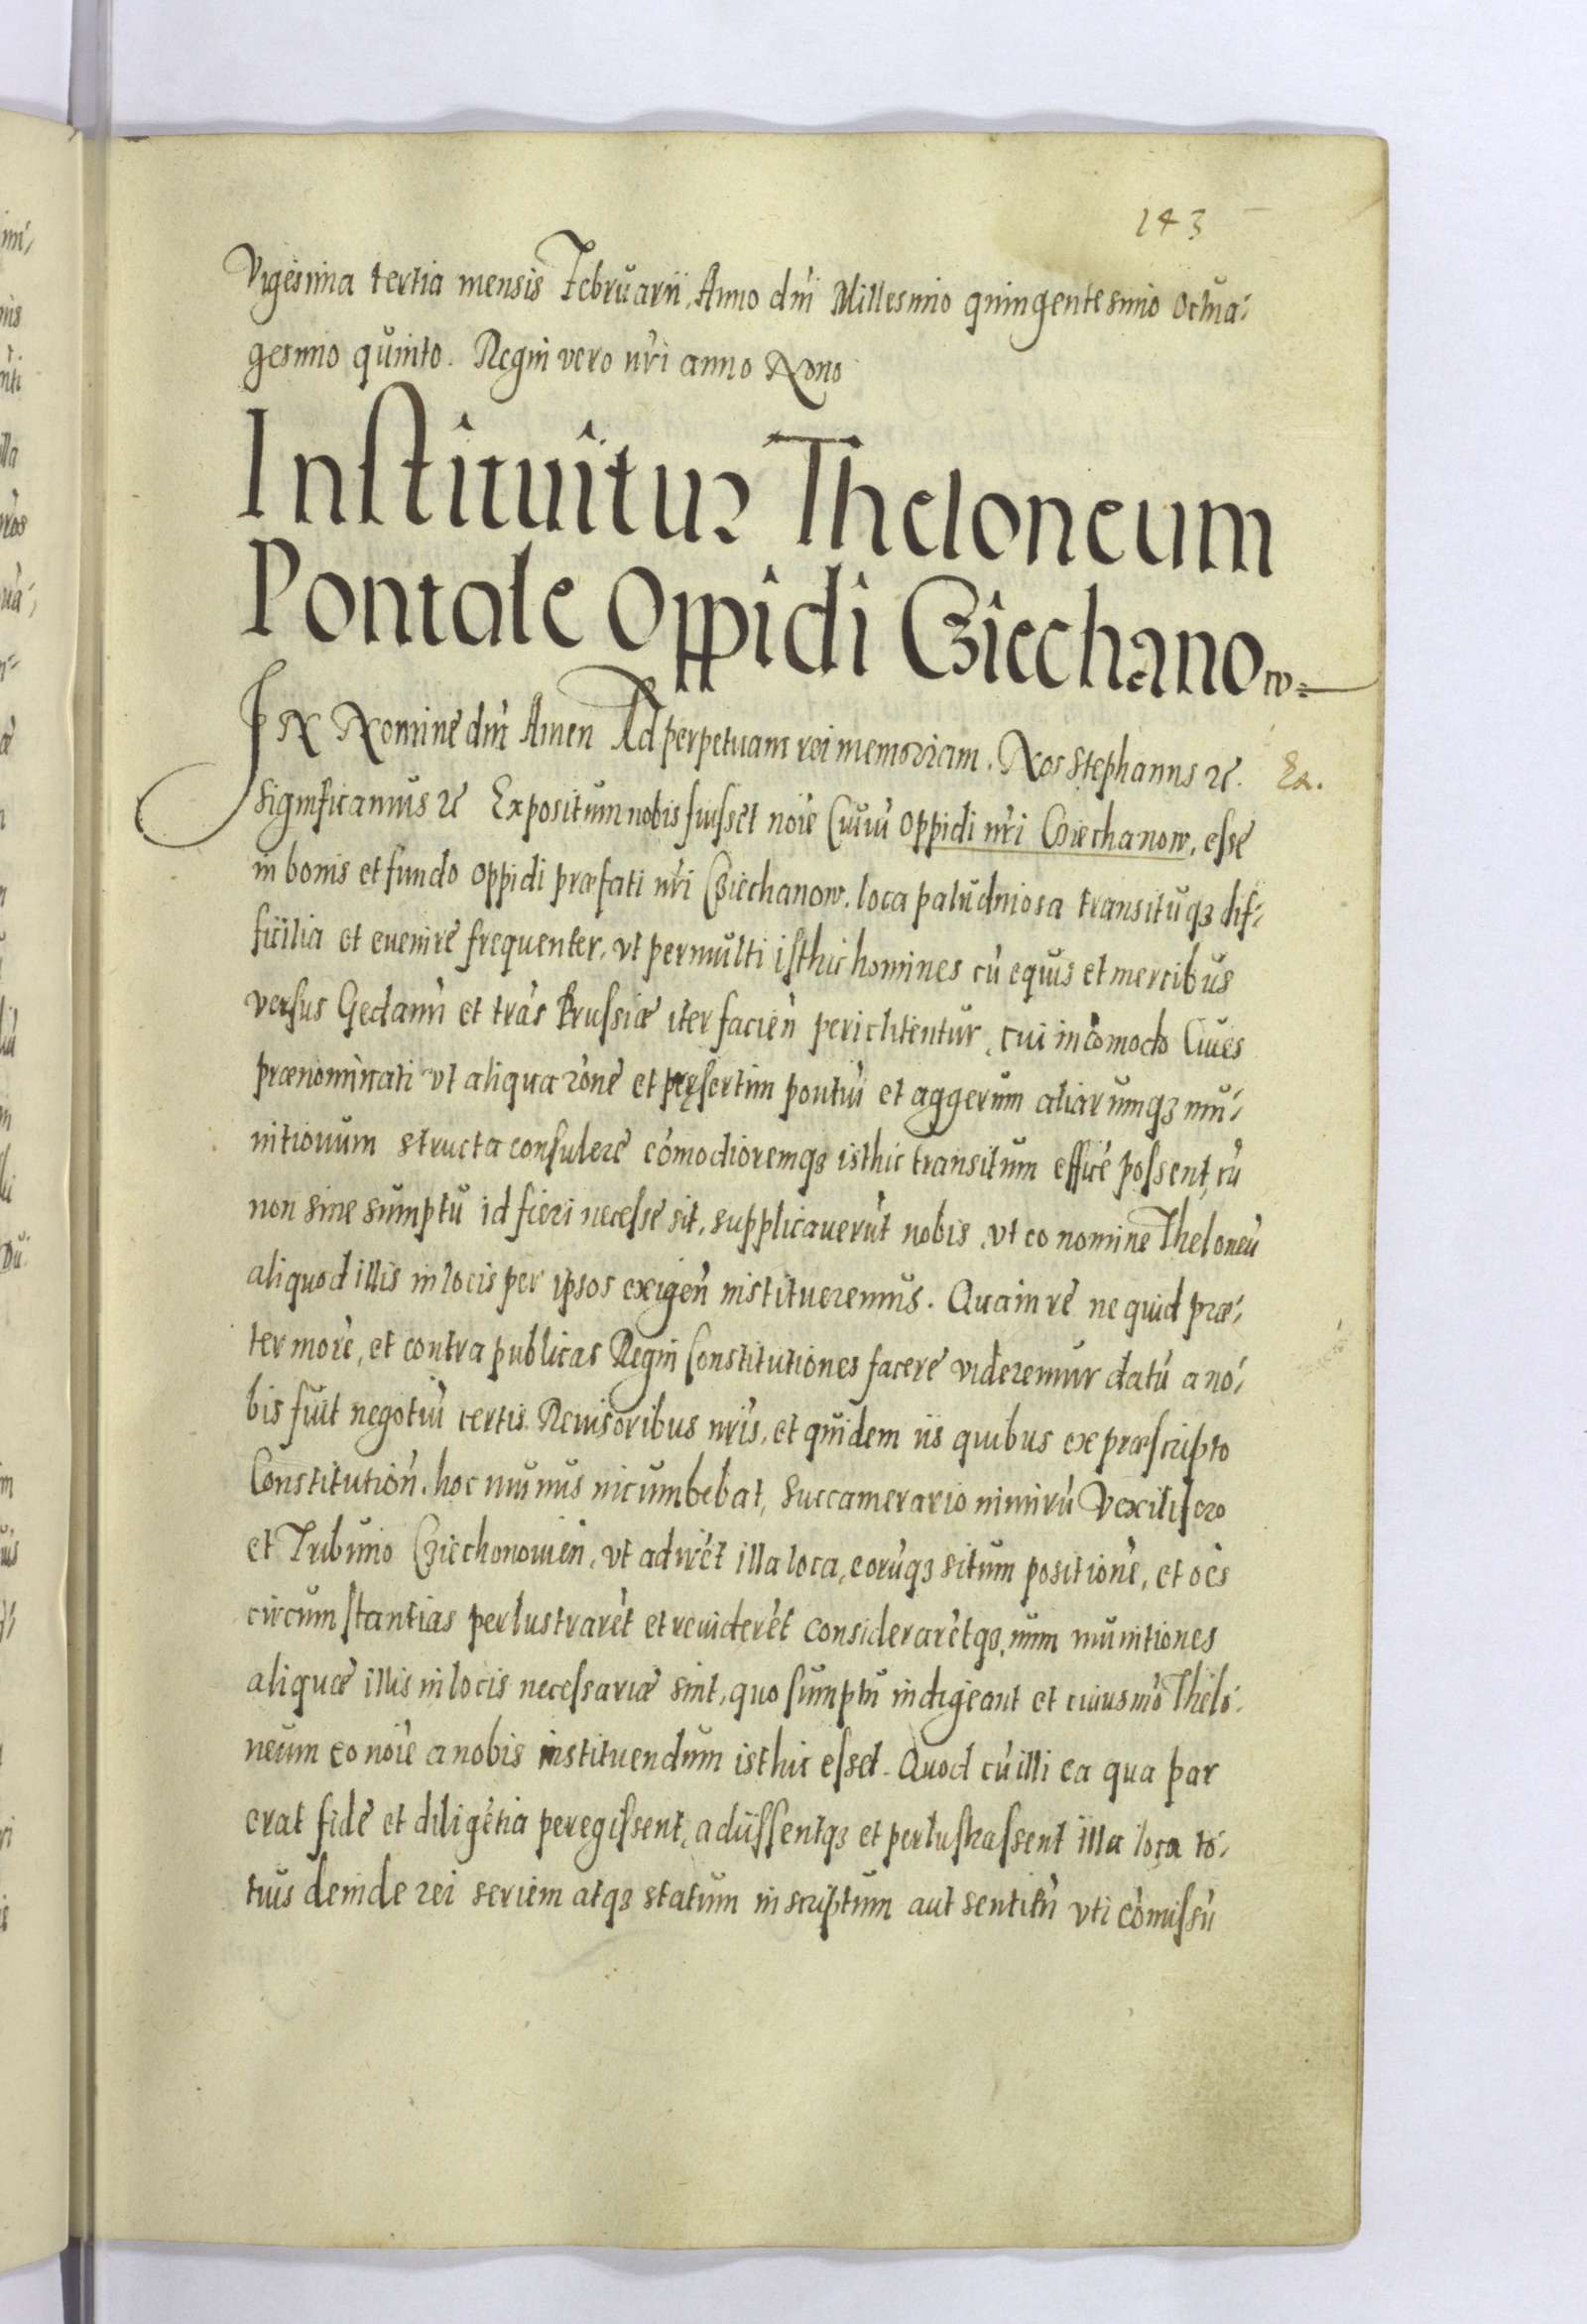 143
Vigesima tertia mensis Februarii, Anno dni Millesimo quingentesimo octua-
gesimo quinto. Regni vero nri anno Nono
Instituitur Theloneum
Pontale Oppidi Cziechanow
IN Nomine dni Amen Ad perpetuam rei memoriam. Nos Stephanus &c. Ex.
significamus &c Expositum nobis fuisset noie Ciuiu oppidi nri Cziechanow, esse
in bonis et fundo oppidi præfati nri Cziechanow. loca paludinosa transituqʒ dif-
ficilia et euenire frequenter, vt permulti isthic homines cu equis et mercibus
versus Gedanu et tras Prussiæ iter facien periclitentur, cui incomodo Ciues
prænominati vt aliqua rone et pręsertim pontiu et aggerum aliarumqʒ mu-
nitionum structa consulere comodioremqʒ isthic transitum efficē possent, cu
non sine sumptu id fieri necesse sit, supplicauerut nobis, vt eo nomine Theloneu
aliquod illis in locis per ipsos exigen institueremus. Qua in re ne quid præ-
ter more, et contra publicas Regni Constitutiones facere videremur datu a no-
bis fuit negotiu certis Reuisoribus nris, et quidem iis quibus ex præscripto
Constitution. hoc munus incumbebat, Succamerario nimiru Vexilifero
et Tribuno Cziechonouien, vt adiret illa loca, eoruqʒ situm positione, et oes
circumstantias perlustraret et reuideret consideraretqʒ, num munitiones
aliquæ illis in locis necessariæ sint, quo sumptu indigeant et cuiusmo Thelo-
neum eo noie a nobis instituendum isthic esset. Quod cu illi ea qua par
erat fide et diligetia peregissent, adiissentqʒ et perlustrassent illa loca to-
tius deinde rei seriem atqʒ statum in scriptum aut sentitu vti comissu